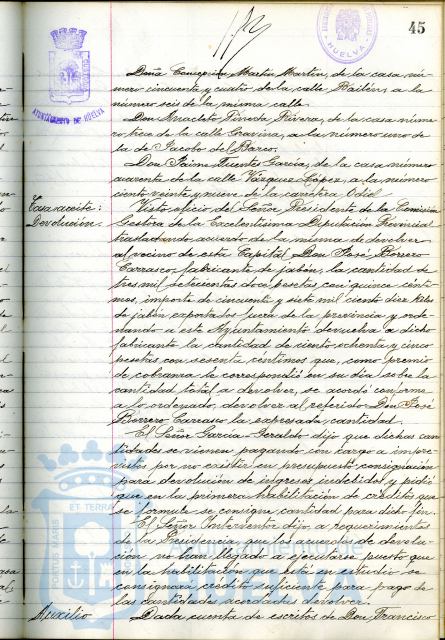 45
AYUNTAMIENTO DE HUELVA
HUELVA
Doña Concepción Martín Martín, de la casa nú-
mero cincuenta y cuatro de la calle Bailén, a la
número seis de la misma calle.
Don Anacleto Pineda Rivera, de la casa núme-
ro trece de la calle Gravina, a la número uno de
la de Jacobo del Barco.
Don Jaime Fuentes García, de la casa número
cuarenta de la calle Vázquez López, a la número
ciento veinte y nueve de la carretera Odiel.
Tasa aceite:
Devolución.
Visto oficio del Señor Presidente de la Comisión
Gestora de la Excelentísima Diputación Provincial
trasladando acuerdo de la misma de devolver
al vecino de esta Capital Don José Borrero
Carrasco, fabricante de jabón, la cantidad de
tres mil setecientas doce pesetas con quince cénti-
mos, importe de cincuenta y siete mil ciento diez kilos
de jabón exportados fuera de la provincia y orde-
nando a este Ayuntamiento devuelva a dicho
fabricante la cantidad de ciento ochenta y cinco
pesetas con sesenta céntimos que, como premio
de cobranza le correspondió en su día sobre la
cantidad total a devolver, se acordó conforme
a lo ordenado, devolver al referido Don José
Borrero Carrasco la expresada cantidad.
El Señor García-Geraldo dijo que dichas can-
tidades se vienen pagando con cargo a impre-
vistos por no existir en presupuesto consignación
para devolución de ingresos indebidos y pidió
que en la primera habilitación de créditos que
se formule se consigne cantidad para dicho fin.
El Señor Interventor dijo, a requerimientos
de la Presidencia, que los acuerdos de devolu-
ción no han llegado a ejecutarse puesto que
en la habilitación que está en estudio se
consignará crédito suficiente para pago de
las cantidades acordadas devolver.
Auxilio
Dada cuenta de escritos de Don Francisco
PORTUS MARIS ET TERRAE
HUELVA